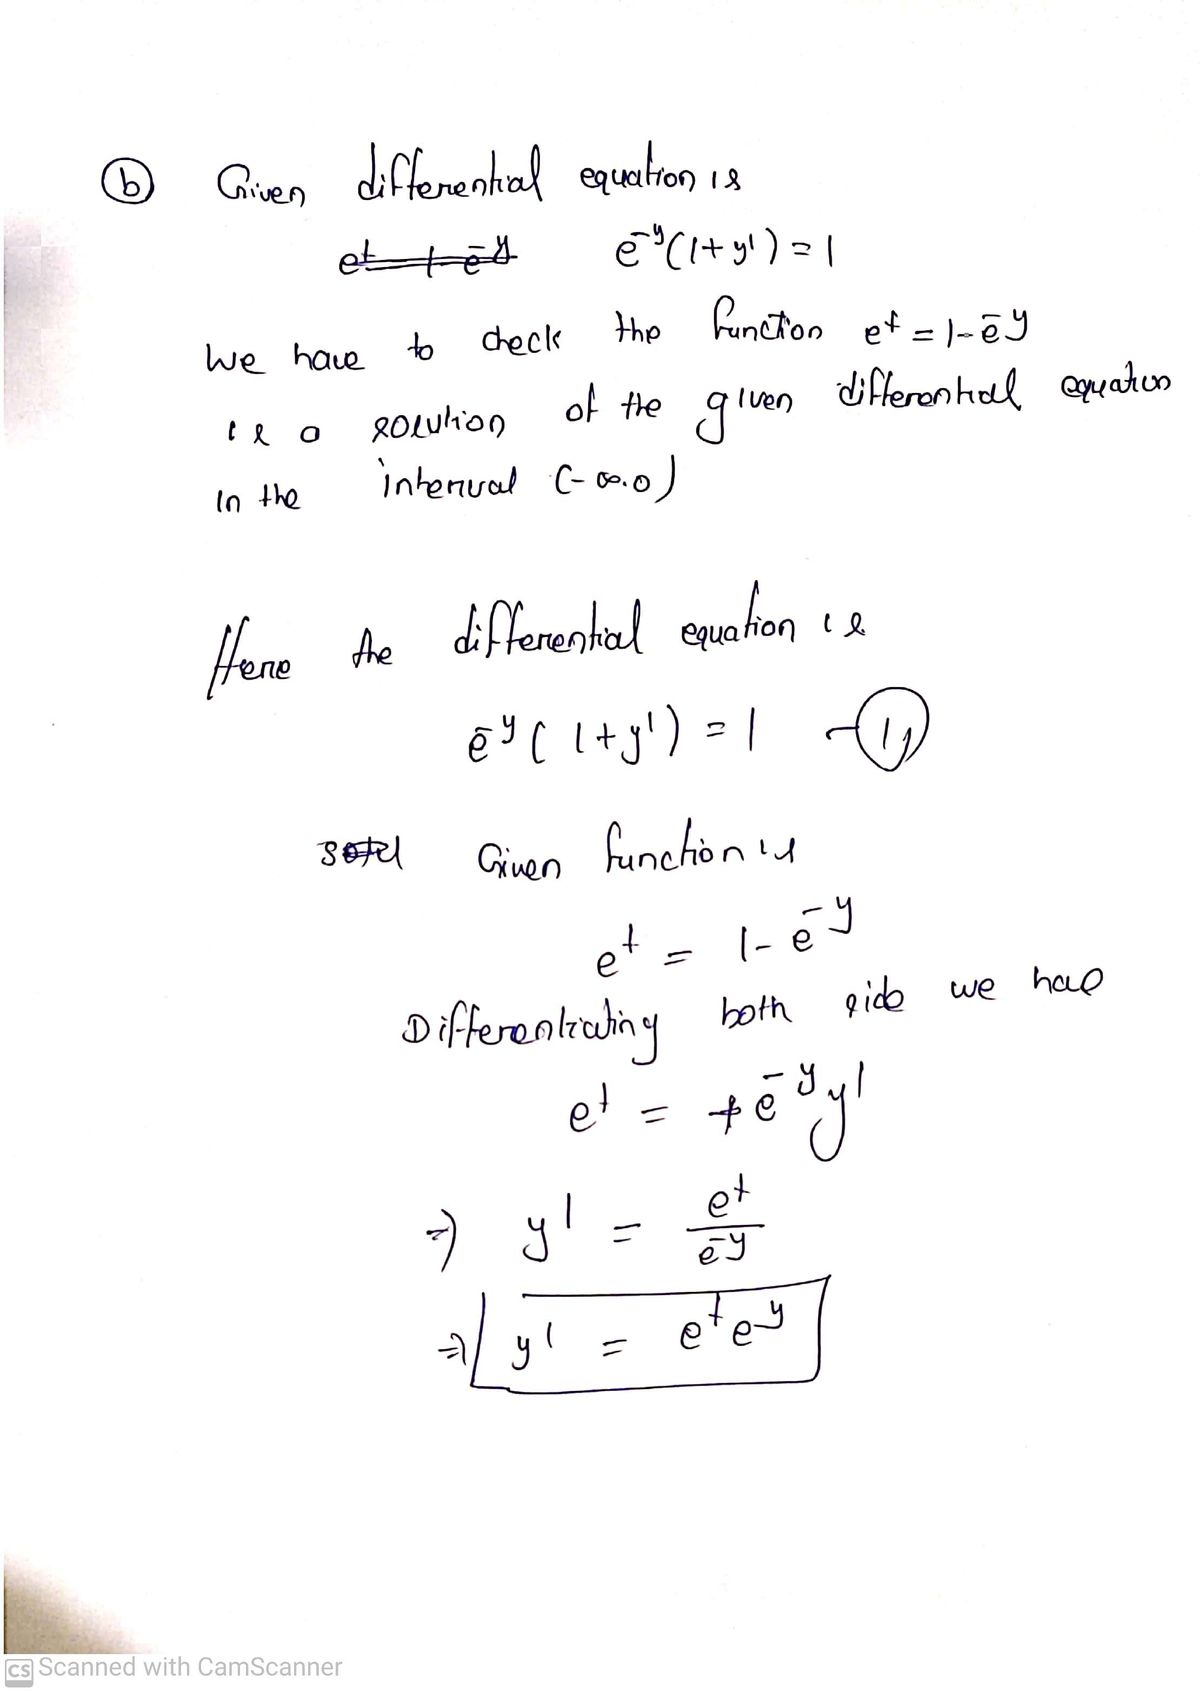 (b) Given differential equation is
e^{-y}(1+y') = 1
We have to check the function e^t = 1-e^{-y}
is a solution of the given differential equation
In the interval (-∞.0)
Here the differential equation is
e^{-y}(1+y') = 1 —(1)
Given function is
e^t = 1-e^{-y}
Differentiating both side we hae
e^t = +e^{-y}y'
⇒ y' = e^t/e^{-y}
⇒ y' = e^t e^y
CS Scanned with CamScanner